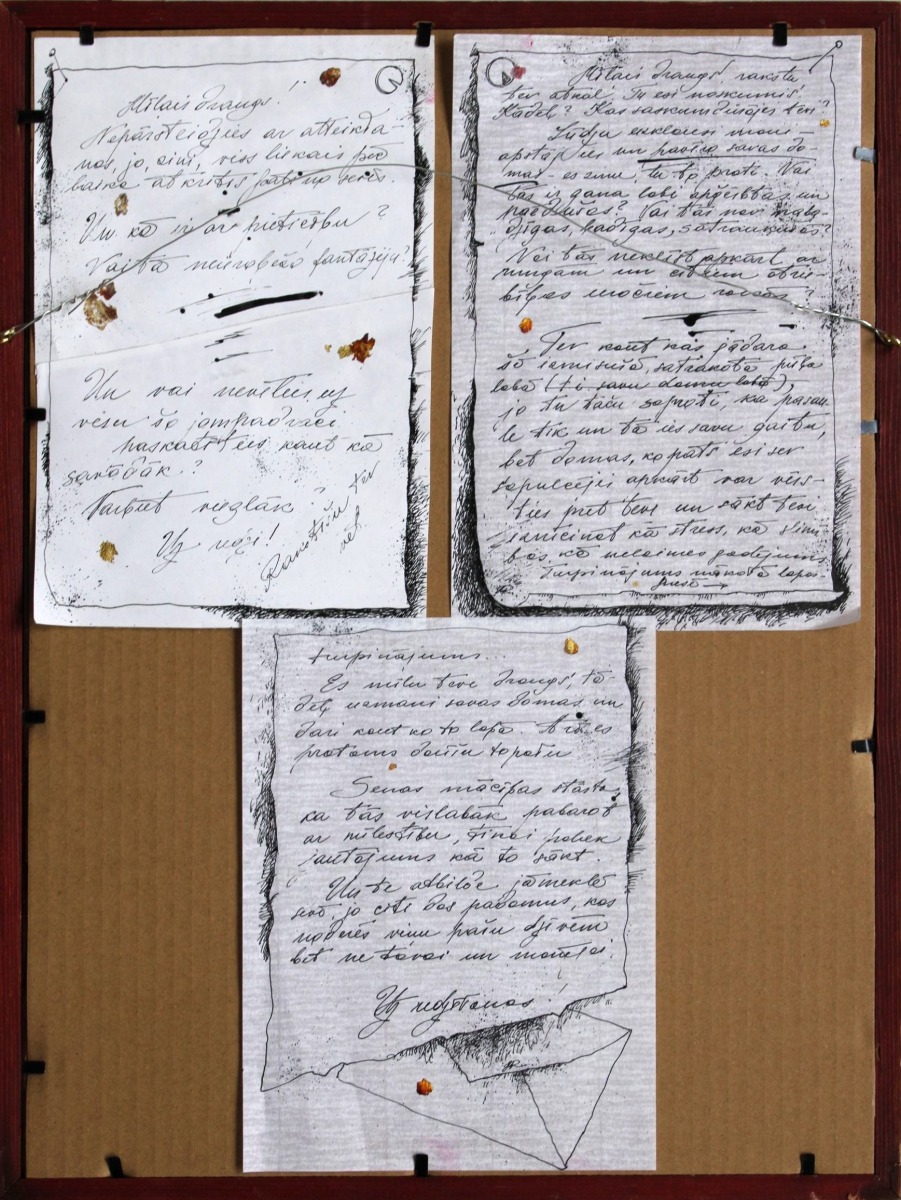 Mīlais draugs!
Nepārsteidzies ar atteikša-
nos, jo, zini, viss liekais pats
laikā atkritīs pats no sevis.
Un kā ir ar pieticību?
Vai tā neierobežo fantāziju?
Un vai nevēlies uz
visu šo jampadraci
paskatīties kaut kā
savādāk?
Varbūt vieglāk?
Uz redzi!
Rakstīšu tev
vēl.
Mīlais draugs, rakstu
tev atkal! Tu esi noskumis!
Kādēļ? Kas saskumdinājis tevi?
Lūdzu ieklausies manī –
apstājies un pavēro savas do-
mas – es zinu, tu to proti. Vai
tās ir gana labi apģērbtas un
paēdušas? Vai tās nav
Vai tās neklīst apkārt ar
un citiem
Tev kaut kas jādara
šā iemesla, satrakotā pūļa
labā (t.i. savu domu labā),
jo tu taču saproti, ka pasau-
le tik un tā ies savu gaitu,
bet domas, ko pats esi sev
sapulcējis apkārt var vērs-
ties pret tevi un sākt tevi
iznīcināt kā stress, kā slimī-
bas, kā nelaimes gadījums.
Turpinājums nākošā lapas
pusē →
turpinājums...
Es mīlu tevi draugs, tā-
dēļ uzmani savas domas un
dari kaut ko to labā. Arī es
protams darīšu to pašu
Senas mācības stāsta,
ka tās vislabāk pabarot
ar mīlestību, tikai paliek
jautājums kā to sākt.
Un te atbilde jāmeklē
sevī, jo citi dos padomus, kas
noderēs viņu pašu dzīvēm
bet ne tavai un manējai.
Uz redzēšanos!